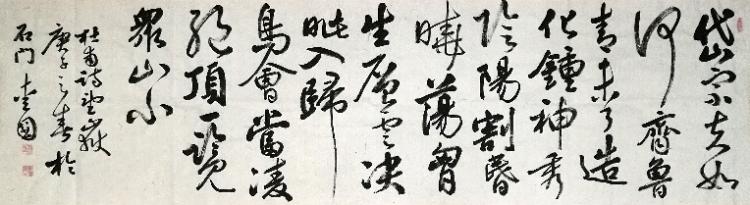 岱山宗夫如
何齊魯
青未了造
化鍾神秀
陰陽割昏
曉蕩胷
生層雲決
眥入歸
鳥會當凌
絕頂一覽
眾山小
杜甫詩望嶽
庚子之春於
石門